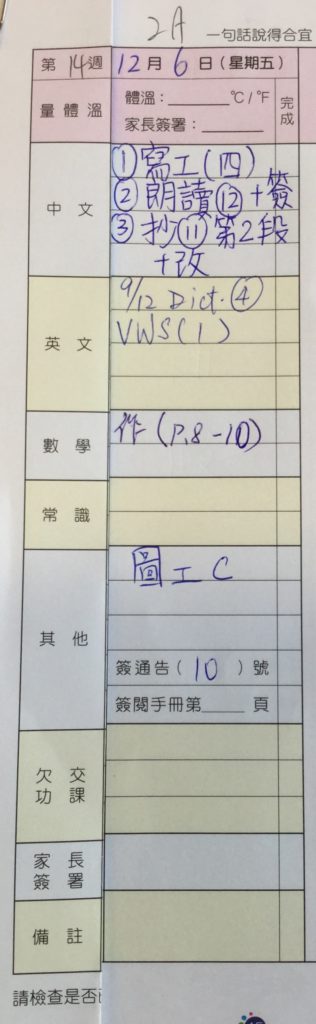 2A 一句話說得合宜
第 14 週 12 月 6 日 (星期五)
量體溫 體溫:______ °C / °F 完成
家長簽署:______
中文 ① 寫工(四)
② 朗讀⑫+簽
③ 抄⑪第2段
+改
英文 9/12 Dict. ④
VWS(1)
數學 作(P.8-10)
常識
其他 圖工C
簽通告( 10 )號
簽閱手冊第____頁
欠交功課
家長簽署
備註
請檢查是否